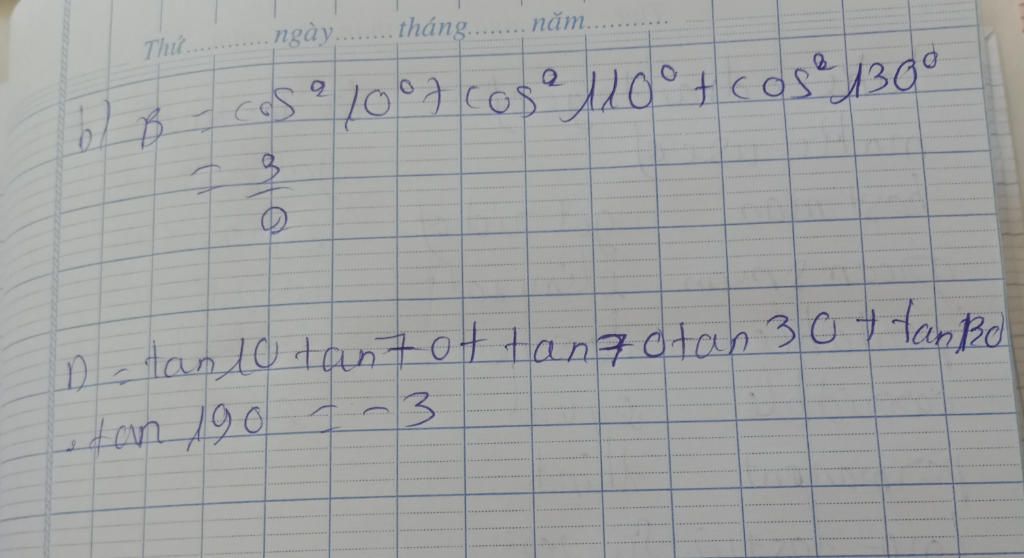 Thứ............ngày........tháng........năm............
b) B = cos² 10° + cos² 110° + cos² 130°
= 3/2
D = tan10 tan70 + tan70tan 30 + tan130
.tan 190 = -3